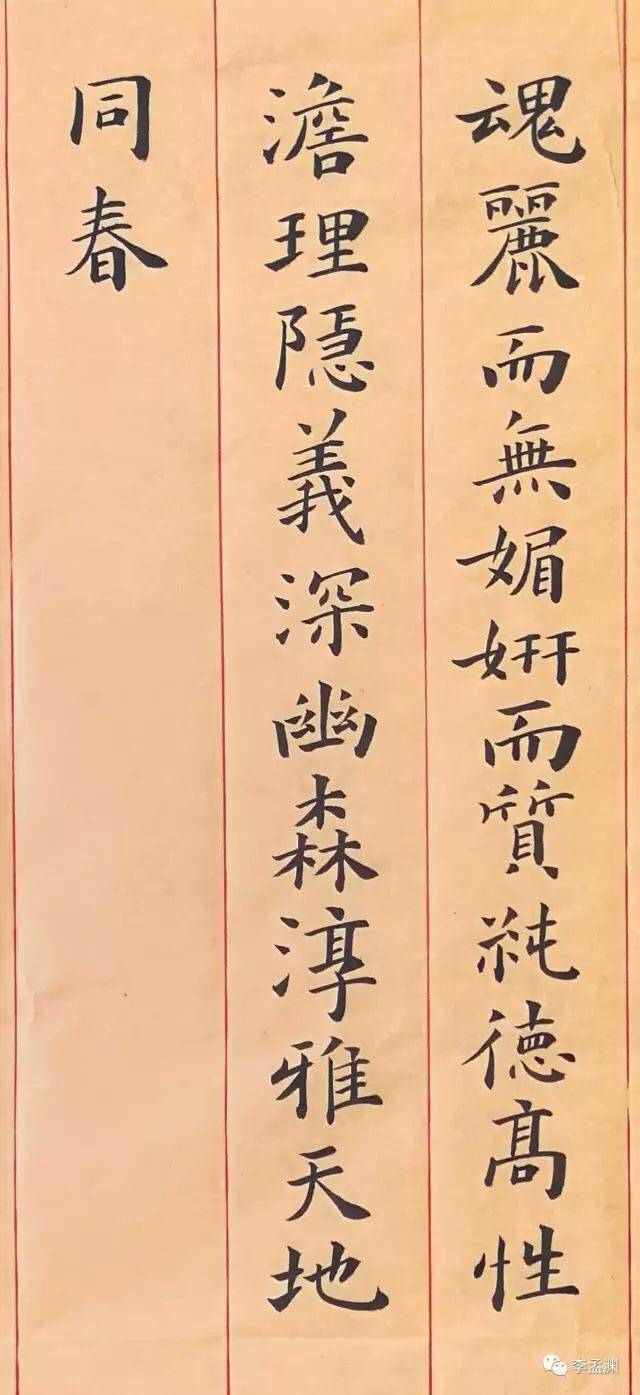 魂麗而無媚妍而質純德高性
澹理隱義深幽森淳雅天地
同春
李孟渊